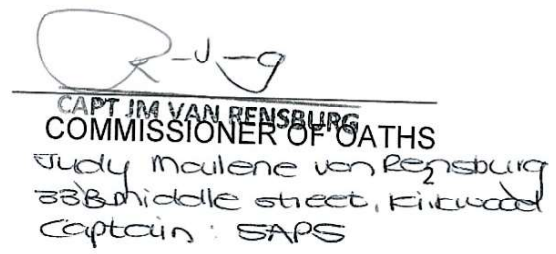 CAPT JM VAN RENSBURG
COMMISSIONER OF OATHS
Judy Maulene van Rensburg
33B middle street, Kirkwood
Captain : SAPS